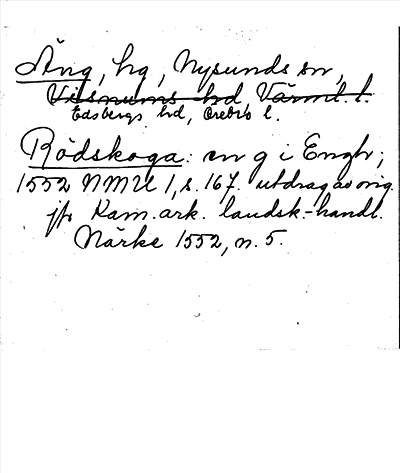 Äng, hg, Nysunds sn,
Visnums hd, Värml. l.
Edsbergs hd, Örebro l.
Rådskoga: en g i Engh;
1552 NMU 1, s. 167. utdrag av orig.
jfr Kam.ark. landsk.-handl.
Närke 1552, n. 5.